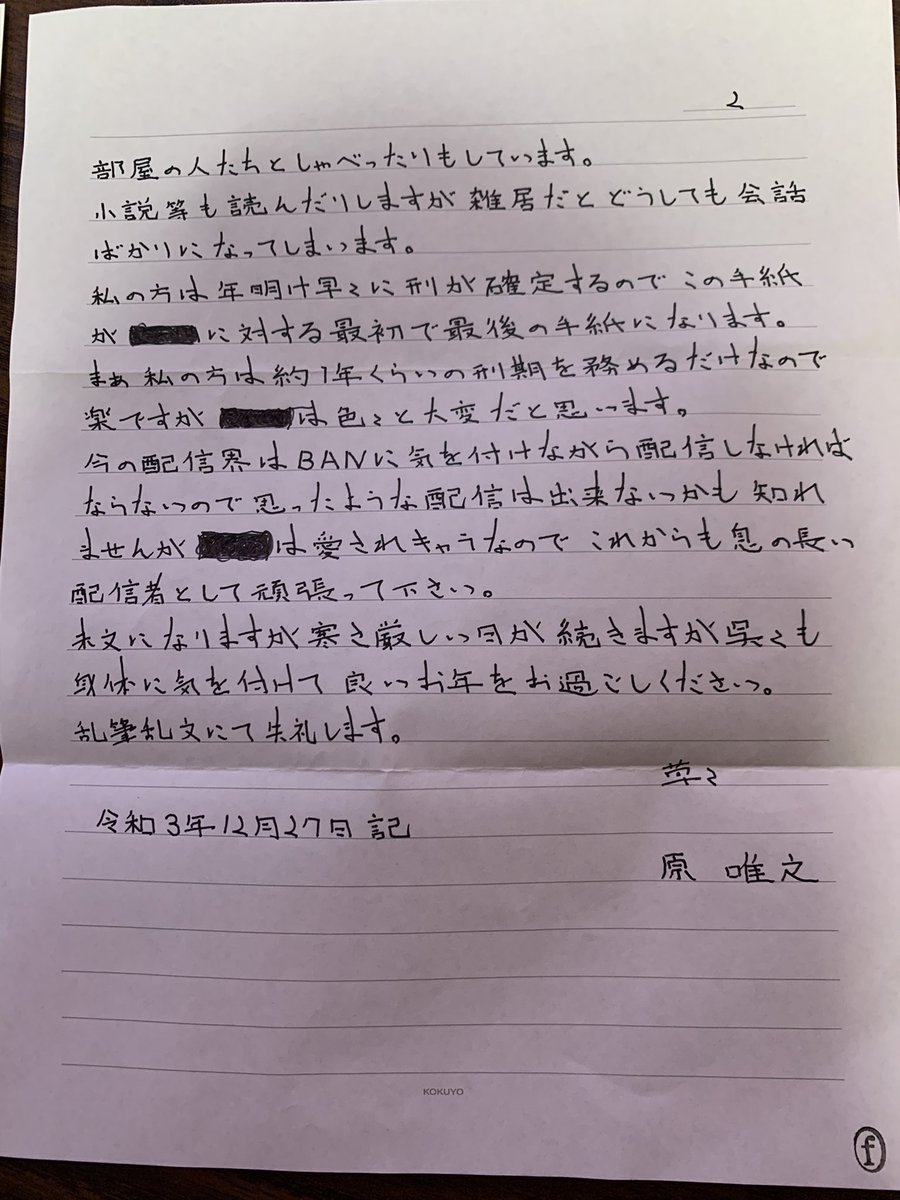 2
部屋の人たちとしゃべったりもしています。
小説等も読んだりしますが雑居だとどうしても会話
ばかりになってしまいます。
私の方は年明け早々に刑が確定するのでこの手紙
が に対する最初で最後の手紙になります。
まぁ私の方は約1年くらいの刑期を務めるだけなので
楽ですが は色々と大変だと思います。
今の配信界はBANに気を付けながら配信しなければ
ならないので思ったような配信は出来ないかも知れ
ませんが は愛されキャラなのでこれからも息の長い
配信者として頑張って下さい。
末文になりますが寒さ厳しい日が続きますが呉々も
身体に気を付けて良いお年をお過ごしください。
乱筆乱文にて失礼します。
草々
令和3年12月27日記
原 唯之
KOKUYO
f